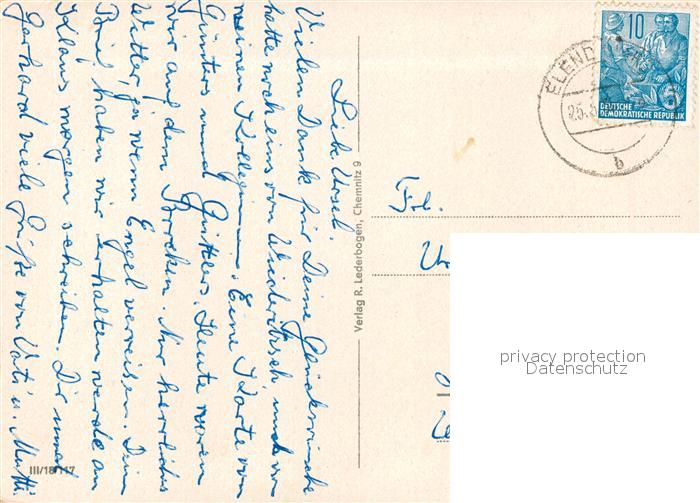 Liebe Ursel.
Vielen Dank für Deine Glückwünsche
hatte noch eins von und von
meinen Kolleginnen. Eine Karte von
Günters und Günthers. Heute waren
wir auf dem Brocken. Nur herrliches
Wetter, ja wenn Engel verreisen. Dein
Brief haben wir erhalten werde an
Klaus morgen schreiben. Dir und
Gerhard viele Grüße von Vati u. Mutti
III/18/117
Verlag R. Lederbogen, Chemnitz 9
ELEND
25.
b
10
DEUTSCHE
DEMOKRATISCHE REPUBLIK
Frl.
Ur
privacy protection
Datenschutz